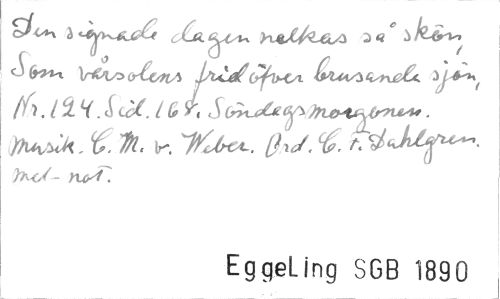 Den signade dagen nalkas så skön,
Som vårsolens frid öfver brusande sjön,
Nr. 124. Sid. 168. Söndagsmorgonen.
Musik. C. M. v. Weber. Ord. C. F. Dahlgren.
mel-not.
EggeLing SGB 1890